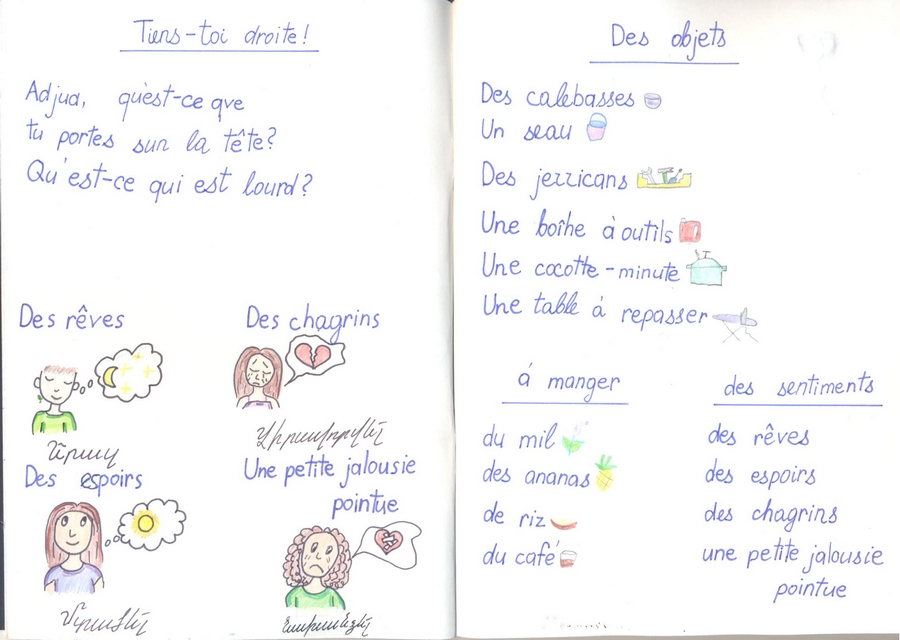 Tiens-toi droite!
Adjua, qu'est-ce que
tu portes sur la tête?
Qu'est-ce qui est lourd?
Des rêves
Des chagrins
Des espoirs
Une petite jalousie
pointue
Des objets
Des calebasses
Un seau
Des jerricans
Une boîhe à outils
Une cocotte-minute
Une table á repasser
á manger
du mil
des ananas
de riz
du café
des sentiments
des rêves
des espoirs
des chagrins
une petite jalousie
pointue